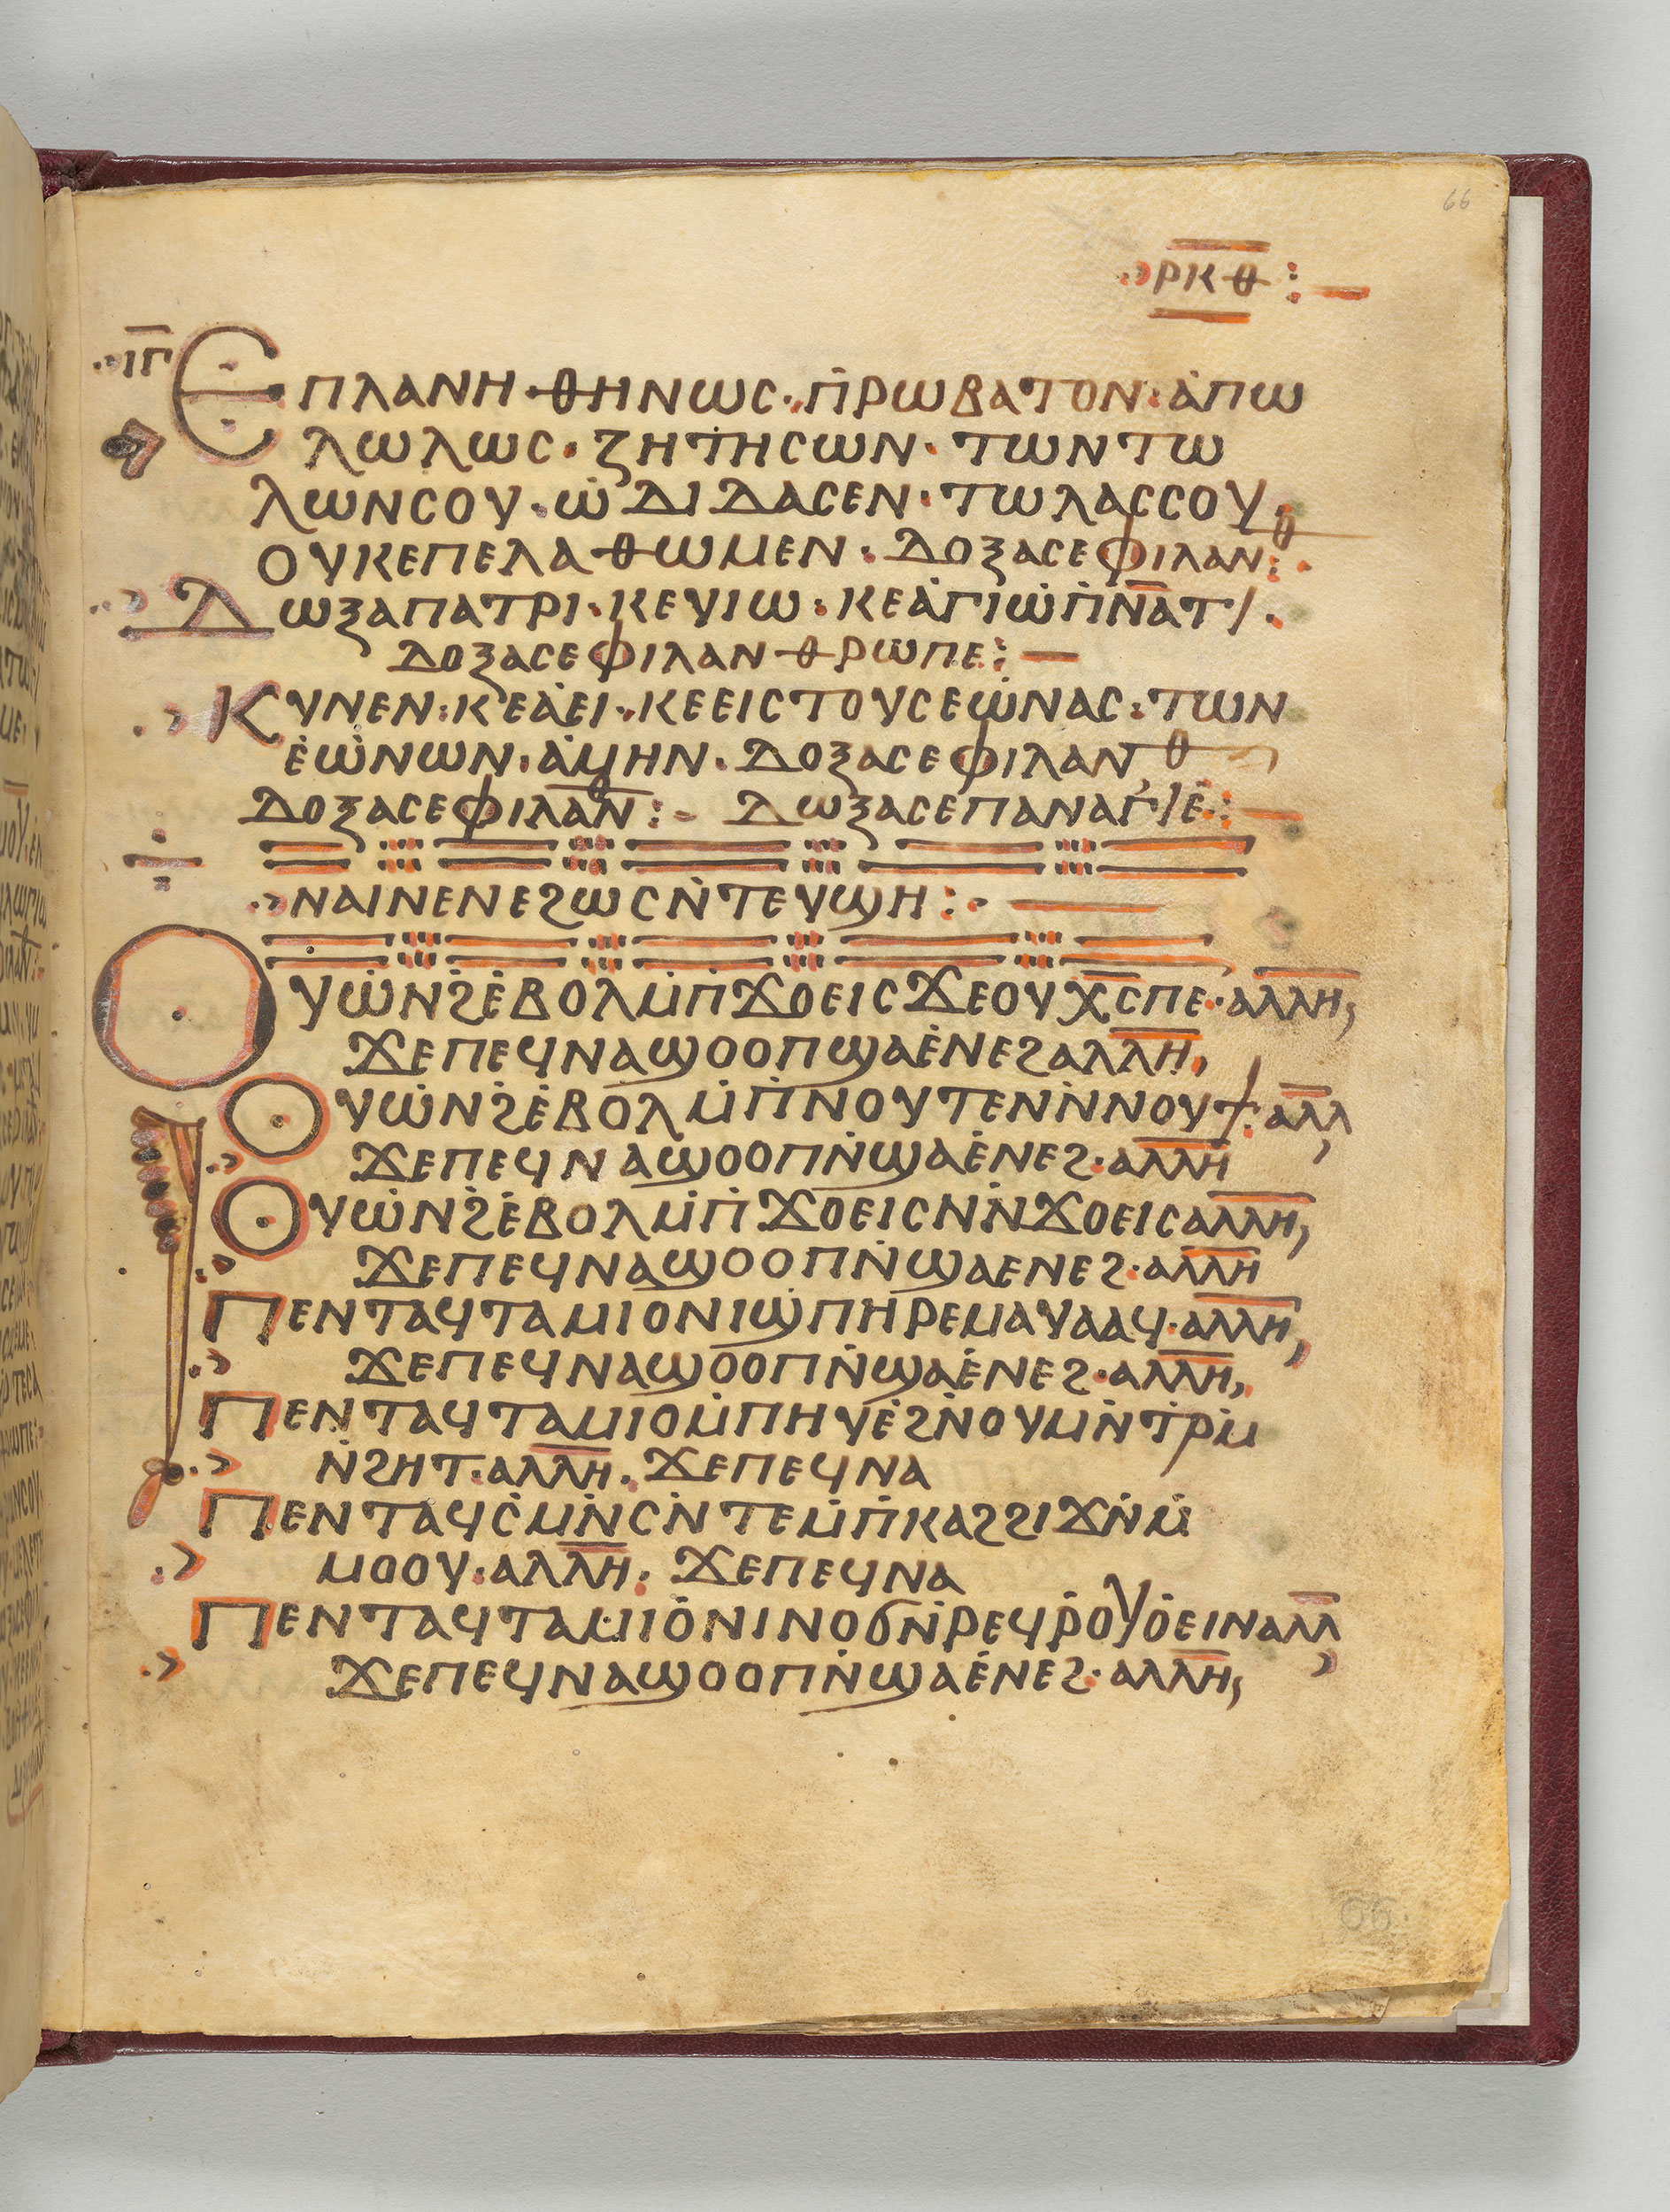 66
ⲣⲕⲑ
ⲓⲡ̅
Ⲉⲡⲗⲁⲛⲏ·ⲑⲏⲛⲱⲥ·ⲡ̇ⲣⲱⲃⲁⲧⲟⲛ·ⲁ̇ⲡⲱ
ⲗⲱⲗⲱⲥ·ⲍⲏⲧⲏⲥⲱⲛ·ⲧⲱⲛⲧⲱ
ⲗⲱⲛⲥⲟⲩ·ⲱ̇ⲇⲓⲇⲁⲥⲉⲛ·ⲧⲱⲗⲁⲥⲥⲟⲩ·
ⲟⲩⲕⲉⲡⲉⲗⲁⲑⲱⲙⲉⲛ·ⲇⲟⲝⲁⲥⲉⲫⲓⲗⲁⲛⲑ:
Ⲇⲱⲝⲁⲡⲁⲧⲣⲓ·ⲕⲉⲩⲓⲱ:ⲕⲉⲁ̇ⲅⲓⲱ̇ⲡ̇ⲛ̅ⲁⲧ/·
ⲇⲟⲝⲁⲥⲉⲫⲓⲗⲁⲛⲑⲣⲱⲡⲉ:—
Ⲕⲩⲛⲉⲛ:ⲕⲉⲁ̇ⲉⲓ·ⲕⲉⲉⲓⲥⲧⲟⲩⲥⲉⲱ̇ⲛⲁⲥ:ⲧⲱⲛ
ⲉ̇ⲱ̇ⲛⲱⲛ·ⲁ̇ⲙⲏⲛ·ⲇⲟⲝⲁⲥⲉⲫⲓⲗⲁⲛⲑ
ⲇⲟⲝⲁⲥⲉⲫⲓⲗⲁⲛⲑ:- ⲇⲱⲝⲁⲥⲉⲡⲁⲛⲁⲅ/ⲉ̇:—
ⲛⲁⲓⲛⲉⲛⲉϩⲱⲥⲛ̇ⲧⲉⲩϣⲏ:·—
Ⲟⲩⲱ̇ⲛϩ̇ⲉ̇ⲃⲟⲗⲙ̇ⲡ̇ϫⲟⲉⲓⲥϫⲉⲟⲩⲭ̅ⲥ̅ⲡⲉ·ⲁⲗⲗⲏ,
ϫⲉⲡⲉϥⲛⲁϣⲟⲟⲡϣⲁⲉ̇ⲛⲉϩⲁⲗⲗⲏ,
Ⲟⲩⲱ̇ⲛϩ̇ⲉ̇ⲃⲟⲗⲙ̇ⲡ̇ⲛⲟⲩⲧⲉⲛⲛ̇ⲛⲟⲩϯ·ⲁⲗⲗ
ϫⲉⲡⲉϥⲛⲁϣⲟⲟⲡⲛ̇ϣⲁⲉ̇ⲛⲉϩ·ⲁⲗⲗⲏ
Ⲟⲩⲱ̇ⲛϩ̇ⲉ̇ⲃⲟⲗⲙ̇ⲡ̇ϫⲟⲉⲓⲥⲛⲛ̇ϫⲟⲉⲓⲥⲁⲗⲗⲏ,
ϫⲉⲡⲉϥⲛⲁϣⲟⲟⲡⲛ̇ϣⲁⲉⲛⲉϩ·ⲁⲗⲗⲏ
Ⲡⲉⲛⲧⲁϥⲧⲁⲙⲓⲟⲛⲓϣⲡⲏⲣⲉⲙⲁⲩⲁⲁϥ·ⲁⲗⲗⲏ,
ϫⲉⲡⲉϥⲛⲁϣⲟⲟⲡⲛ̇ϣⲁⲉ̇ⲛⲉϩ·ⲁⲗⲗⲏ,
Ⲡⲉⲛⲧⲁϥⲧⲁⲙⲓⲟⲙ̇ⲡⲏⲩⲉ̇ϩⲛ̇ⲟⲩⲙⲛ̇ⲧⲣ̇ⲙ
ⲛ̇ϩⲏⲧ·ⲁⲗⲗⲏ·ϫⲉⲡⲉϥⲛⲁ
Ⲡⲉⲛⲧⲁϥⲥ̇ⲙⲛ̇ⲥⲛ̇ⲧⲉⲙ̇ⲡ̇ⲕⲁϩϩⲓϫⲛ̇ⲙ̇
ⲙⲟⲟⲩ·ⲁⲗⲗⲏ·ϫⲉⲡⲉϥⲛⲁ
Ⲡⲉⲛⲧⲁϥⲧⲁⲙⲓⲟ̇ⲛⲓⲛⲟϭⲛ̇ⲣⲉϥⲣ̇ⲟⲩⲟ̇ⲉⲓⲛⲁⲗⲗ
ϫⲉⲡⲉϥⲛⲁϣⲟⲟⲡⲛ̇ϣⲁⲉ̇ⲛⲉϩ·ⲁⲗⲗⲏ,